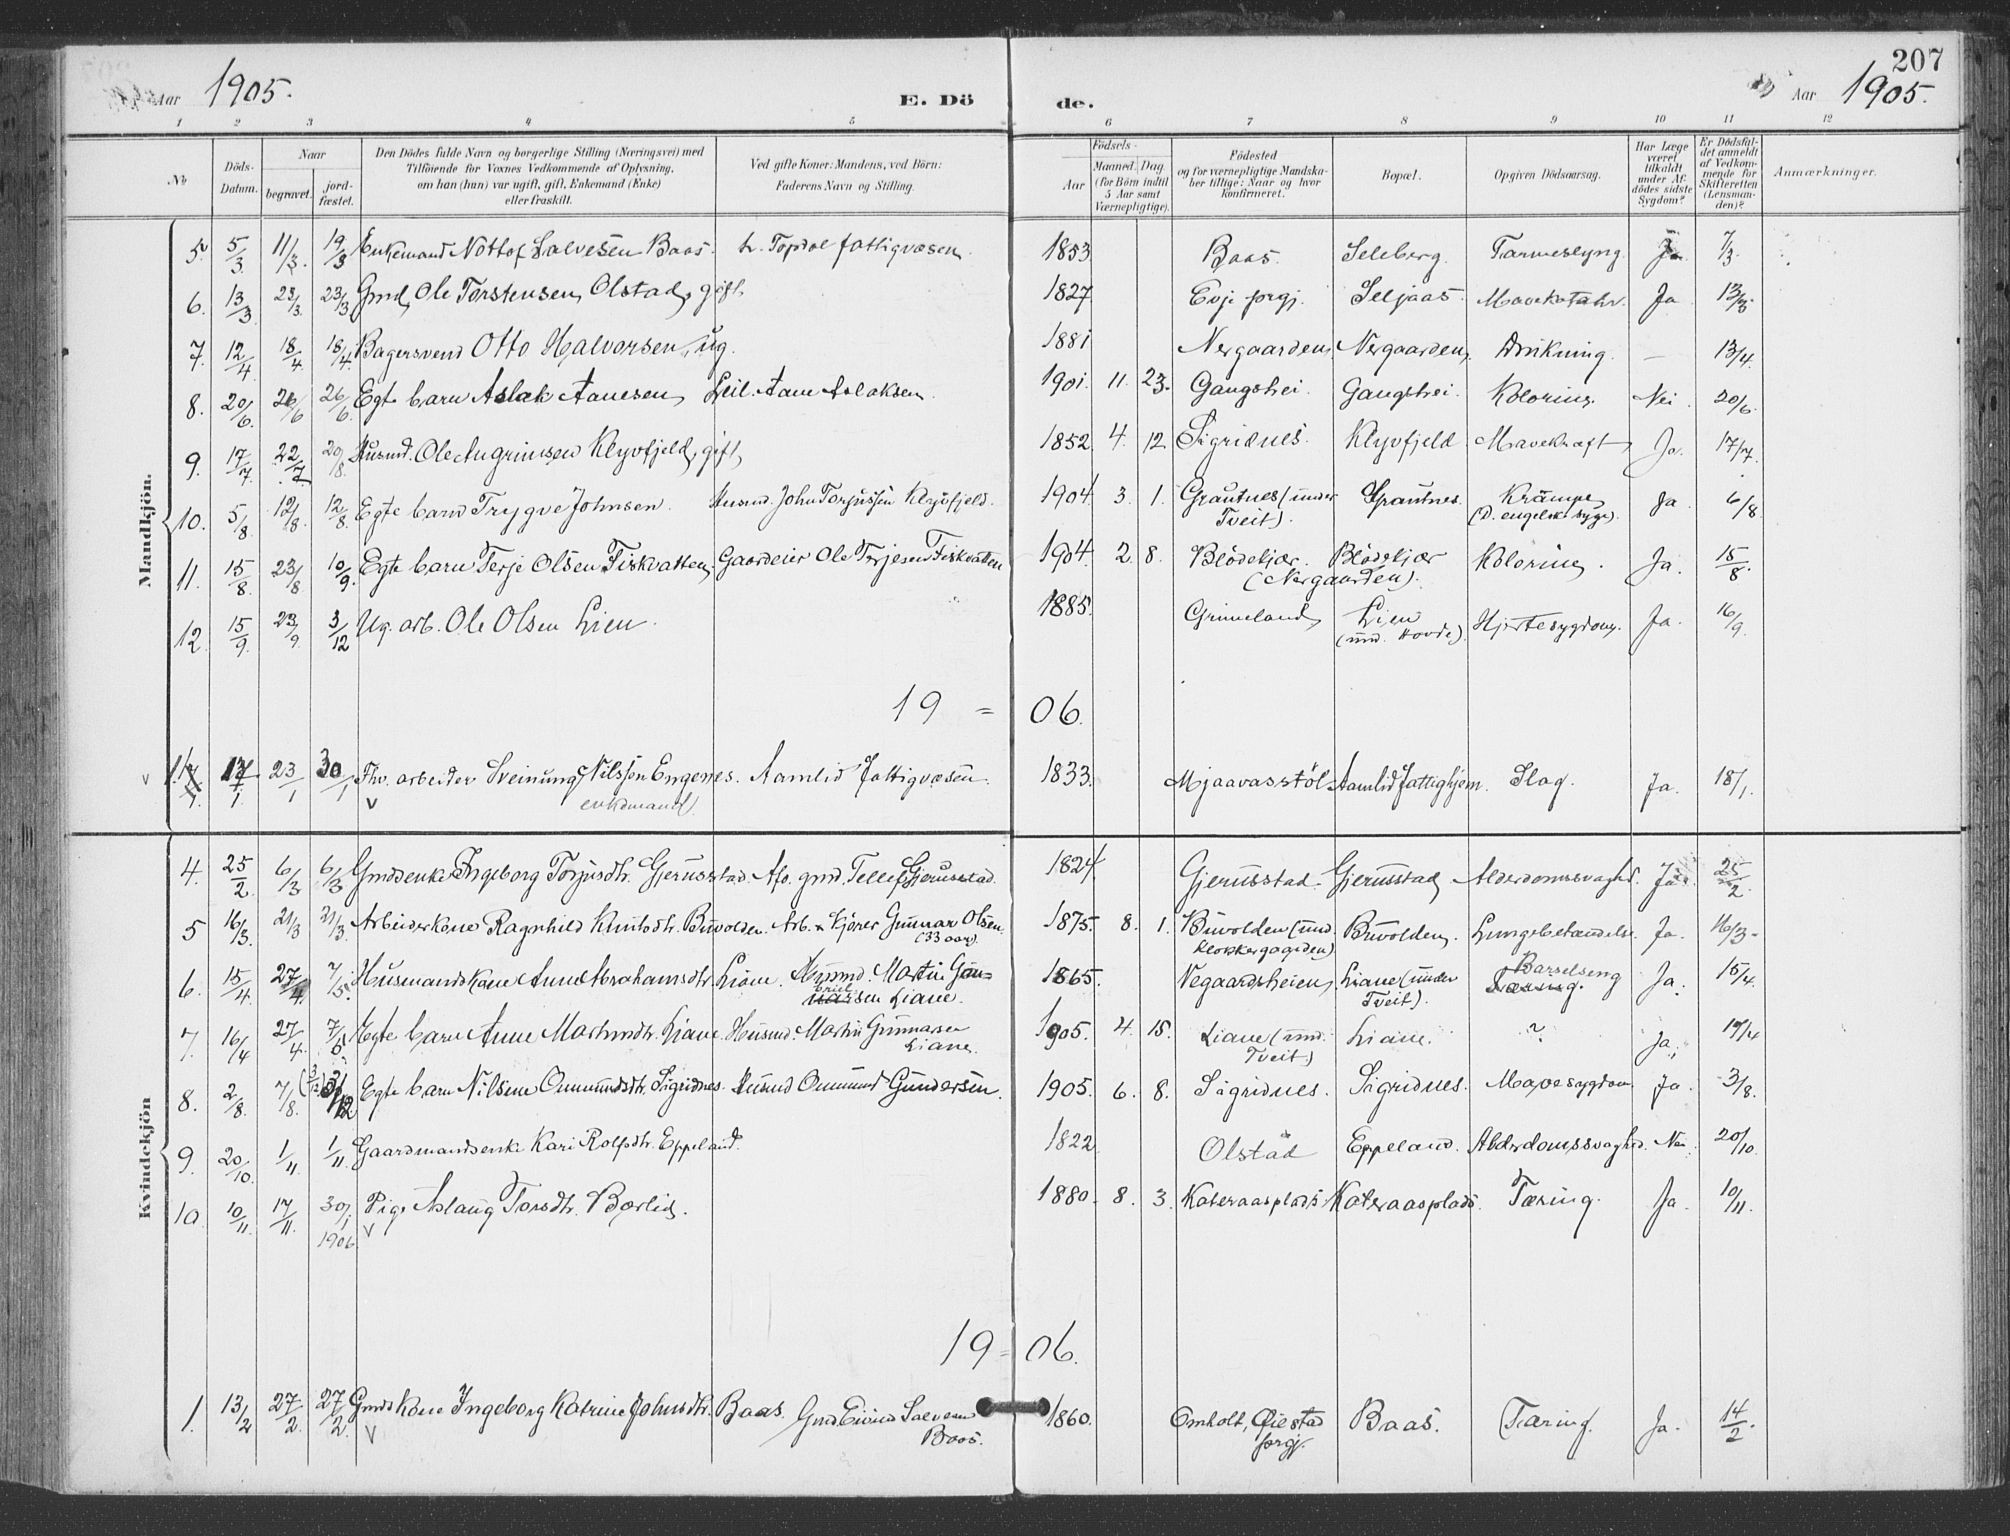 207
Aar 1905. E. Dö de. Aar 1905.
1 2 3 4 5 6 7 8 9 10 11 12
No Döds-Datum. Naar begravet. jord-fæstet. Den Dödes fulde Navn og borgerlige Stilling (Næringsvei) med Tilföiende for Voxnes Vedkommende af Oplysning, om han (hun) var ugift, gift, Enkemand (Enke) eller fraskilt. Ved gifte Koner: Mandens, ved Börn: Faderens Navn og Stilling. Födsels- Aar Maaned. Dag. (for Börn indtil 5 Aar samt Værnepligtige). Födested og for værnepligtige Mandskaber tillige: Naar og hvor konfirmeret. Bopæl. Opgiven Dödsaarsag. Har Læge været tilkaldt under Afdödes sidste Sygdom? Er Dödsfaldet anmeldt af Vedkommende for Skifteretten (Lensmanden)? Anmærkninger.
Mandkjön.
5. 5/3 11/3. 19/3 Enkemand Nottof Salvesen Baas. Topdal fattigvæsen. 1853 Baas. Seleberg. Tarmeslyng. Ja 7/3.
6. 13/3 23/3. 23/3 Gmd, Ole Torstensen, Olstad, gift. 1827 Evje prgj. Seljaas. Mavekatahr. Ja 13/3
7. 12/4. 18/4 18/4. Bagersvend Otto Halvorsen, ug. 1881 Nergaarden, Nergaarden, Drukning. — 13/4.
8. 20/6. 26/6 26/6. Egte barn Aslak Aanesen, Leil. Aane Aslaksen. 1901. 11. 23. Gangshei. Gangshei. Kolorine. Nei. 20/6.
9. 17/7. 22/7 20/8. Husmd. Ole Angrimsen Klyvfjeld, gift, 1852 4. 12 Sigridnes. Klyvfjeld Mavekræft, Ja. 17/7.
10. 5/8. 12/8. 12/8. Egte barn Trygve Johnsen. Husmd. John Torjussen Klyvfjeld. 1904 3. 1. Grautnes (under Tveit). Grautnes. Krämpe, (D. engelske syge). Ja 6/8.
11. 15/8. 23/8 10/9. Egte barn Terje Olsen Fiskvatten, Gaardeier Ole Terjesen Fiskvatten 1904 2. 8. Blödekjær. Blödekjær (Nergaarden). Kolorine. Ja. 15/8.
12. 15/9. 23/9. 3/12 Ug. arb. Ole Olsen Lien. 1885. Grimeland, Lien (und. Hovde). Hjertesygdom. Ja. 16/9.
19 = 06.
v 1. 17/1. 23/1 30/1 Fhv. arbeider Sveinung Nilssen Engenes. Aamlid Fattigvæsen. 1833. Mjaavasstöl Aamlid fattighjem. Slag. Ja. 18/1.
v enkemand.
Kvindekjön
4. 25/2. 6/3 6/3 Gmdsenke Ingeborg Torjusdtr. Gjerusstad. Afd. gmd. Tellef Gjerusstad. 1824 Gjerusstad. Gjerusstad, Alderdomssvaghd. Ja 25/2.
5 16/3. 21/3 21/3. Arbeiderkone Ragnhild Knutsdtr. Buvolden. Arb. & kjörer Gunnar Olsen (33 aar). 1875. 8. 1. Buvolden (und. Klokkergaarden) Buvolden, Lungebetændelse. Ja. 16/3.
6. 15/4. 27/4 7/5. Husmandskone Anne Abrahamsdtr. Liane. Husmd. Martin Gunnarsen Liane. 1865. Vegaardsheien, Liane (under Tveit). Barselseng Ja. 15/4.
7. 16/4 27/4. 7/5 Egte barn Anne Martinsdtr. Liane. Husmd. Martin Gunnarsen Liane. 1905. 4. 15. Liane (und. Tveit) Liane. ? Ja. 17/4
8. 2/8. 7/8. (3/12) 3/12 Egte barn Nilsine Omundsdtr. Sigridnes. Husmd Omund Gundersen. 1905. 6. 8. Sigridnes. Sigridnes. Mavesygdom Ja. 3/8.
9. 20/10. 1/11 1/11. Gaardmandsenke Kari Rolfsdtr. Eppeland. 1822 Olstad Eppeland. Alderdomssvaghed. Nei. 20/10.
10 10/11. 17/11. 30/1 1906 Pige Aslaug Torsdtr. Borlid. v 1880. 8. 3. Kateraasplads. Kateraasplads. Tæring. Ja. 10/11.
19 = 06.
1. 13/2 27/2. 27/2. Gmdskone Ingeborg Katrine Johnsdtr. Baas. Gmd Eivind Salvesen Baas. 1860. Omholt, Öiestad prgj. Baas. Tæring. Ja. 14/2.
v